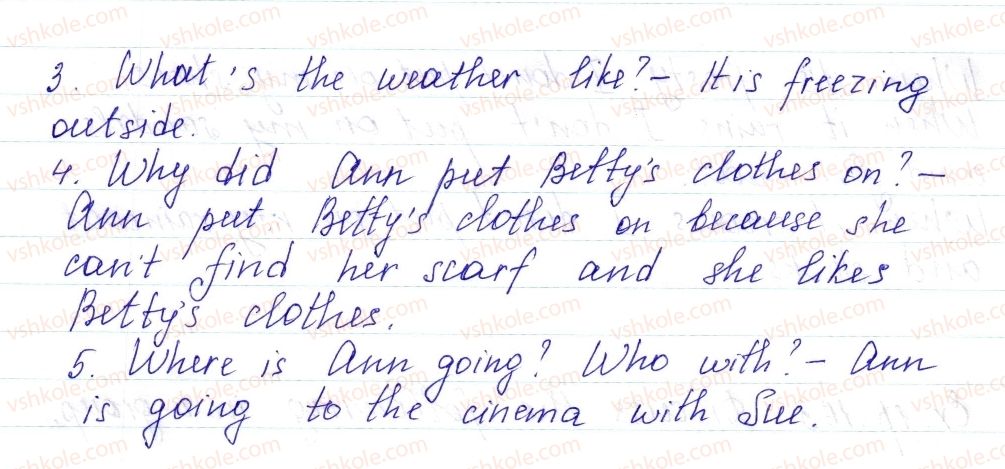 3. What's the weather like? – It is freezing
outside.
4. Why did Ann put Betty's clothes on? –
Ann put Betty's clothes on because she
can't find her scarf and she likes
Betty's clothes.
5. Where is Ann going? Who with? – Ann
is going to the cinema with Sue.